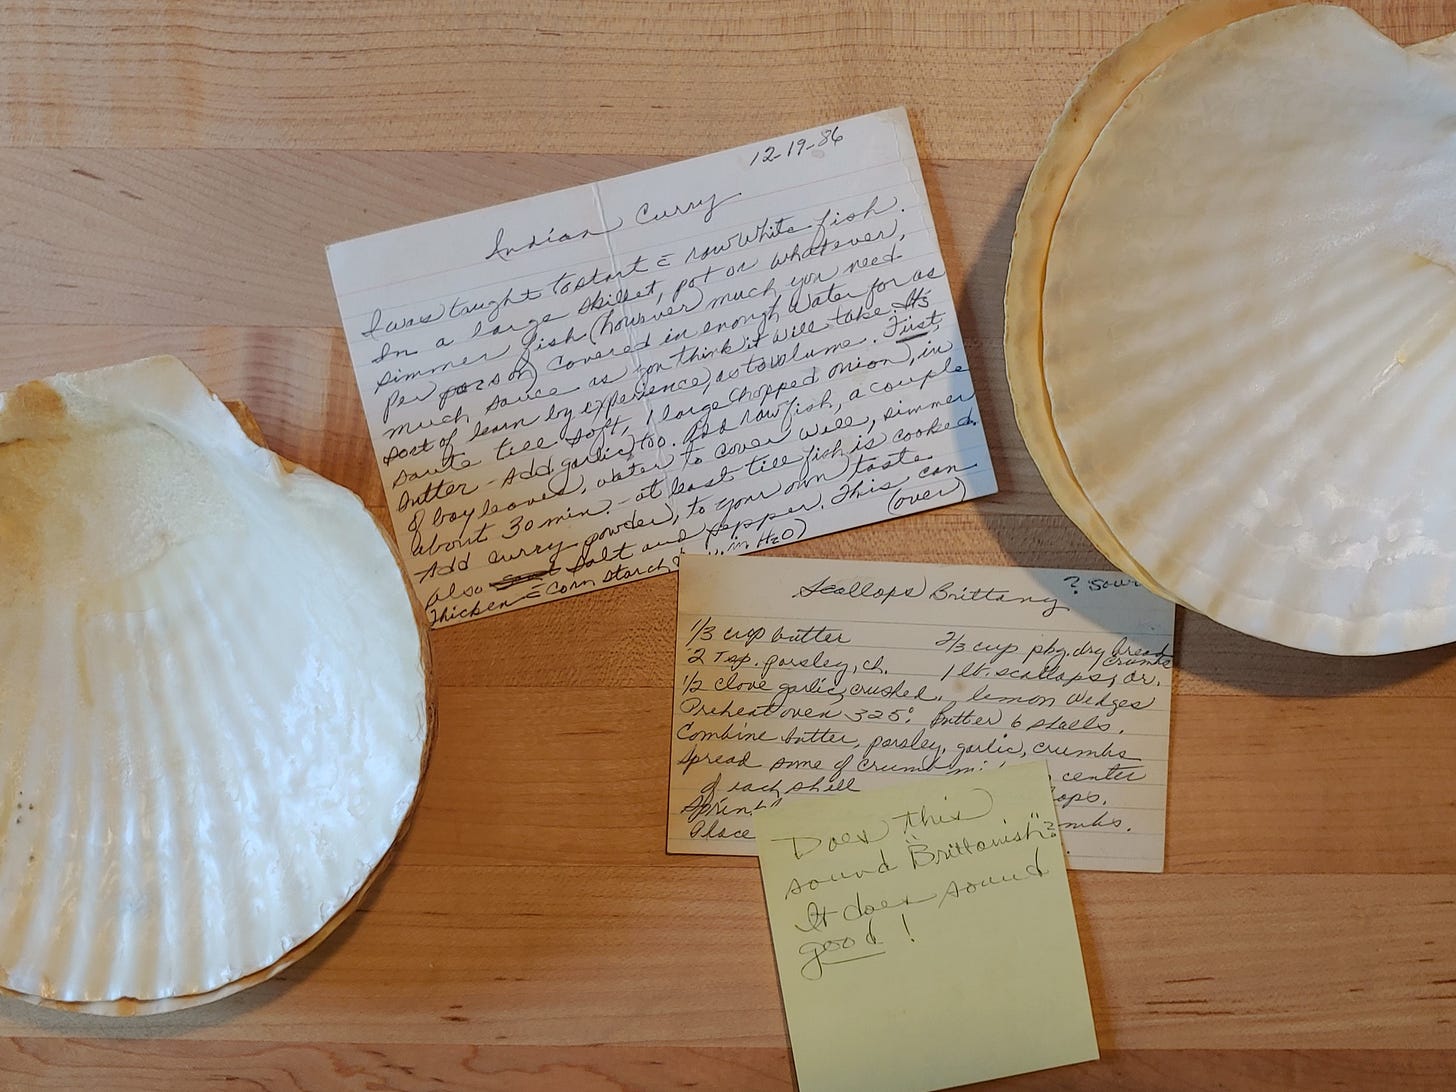 12-19-86
Indian Curry
I was taught to start c̄ raw white fish.
In a large skillet, pot or whatever,
simmer fish (however much you need
per person) covered in enough water for as
much sauce as you think it will take. It's
sort of learn by experience, as to volume. First,
saute till soft, 1 large chopped onion, in
butter - add garlic, too. Add raw fish, a couple
of bay leaves, water to cover well, simmer
about 30 min. - at least till fish is cooked.
Add curry powder, to your own taste
also salt and pepper. This can
(over)
Thicken c̄ corn starch in H2O)
Scallops Brittany
? Sour
1/3 cup butter 2/3 cup pkg. dry bread crumbs
2 Tsp. parsley, ch. 1 lb. scallops, dr.
1/2 clove garlic, crushed lemon wedges
Preheat oven 325°. Butter 6 shells.
Combine butter, parsley, garlic, crumbs
Spread some of crumb center
of each shell
Place
Does this
sound "Brittanish"?
It does sound
good!